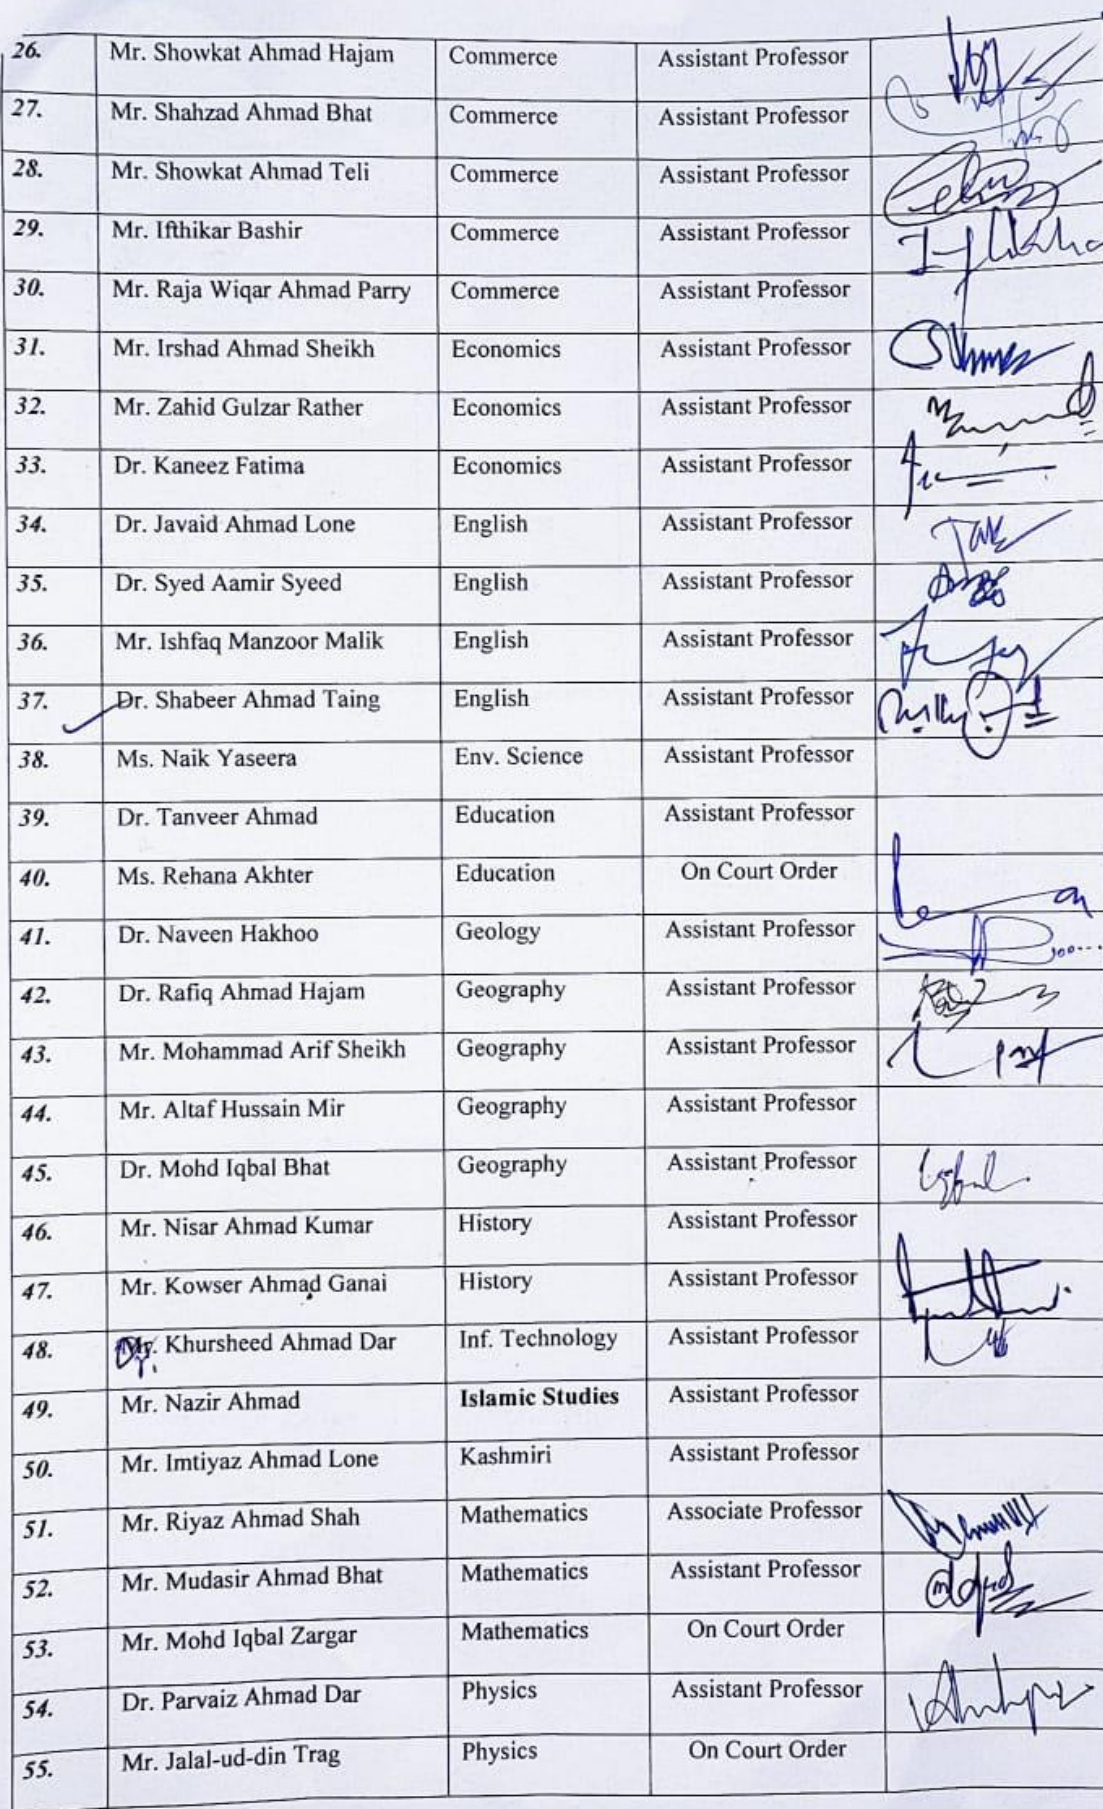 26. Mr. Showkat Ahmad Hajam Commerce Assistant Professor
27. Mr. Shahzad Ahmad Bhat Commerce Assistant Professor
28. Mr. Showkat Ahmad Teli Commerce Assistant Professor
29. Mr. Ifthikar Bashir Commerce Assistant Professor
30. Mr. Raja Wiqar Ahmad Parry Commerce Assistant Professor
31. Mr. Irshad Ahmad Sheikh Economics Assistant Professor
32. Mr. Zahid Gulzar Rather Economics Assistant Professor
33. Dr. Kaneez Fatima Economics Assistant Professor
34. Dr. Javaid Ahmad Lone English Assistant Professor
35. Dr. Syed Aamir Syeed English Assistant Professor
36. Mr. Ishfaq Manzoor Malik English Assistant Professor
37. Dr. Shabeer Ahmad Taing English Assistant Professor
38. Ms. Naik Yaseera Env. Science Assistant Professor
39. Dr. Tanveer Ahmad Education Assistant Professor
40. Ms. Rehana Akhter Education On Court Order
41. Dr. Naveen Hakhoo Geology Assistant Professor
42. Dr. Rafiq Ahmad Hajam Geography Assistant Professor
43. Mr. Mohammad Arif Sheikh Geography Assistant Professor
44. Mr. Altaf Hussain Mir Geography Assistant Professor
45. Dr. Mohd Iqbal Bhat Geography Assistant Professor Iqbal
46. Mr. Nisar Ahmad Kumar History Assistant Professor
47. Mr. Kowser Ahmad Ganai History Assistant Professor
48. Dr. Khursheed Ahmad Dar Inf. Technology Assistant Professor
49. Mr. Nazir Ahmad Islamic Studies Assistant Professor
50. Mr. Imtiyaz Ahmad Lone Kashmiri Assistant Professor
51. Mr. Riyaz Ahmad Shah Mathematics Associate Professor
52. Mr. Mudasir Ahmad Bhat Mathematics Assistant Professor
53. Mr. Mohd Iqbal Zargar Mathematics On Court Order
54. Dr. Parvaiz Ahmad Dar Physics Assistant Professor
55. Mr. Jalal-ud-din Trag Physics On Court Order